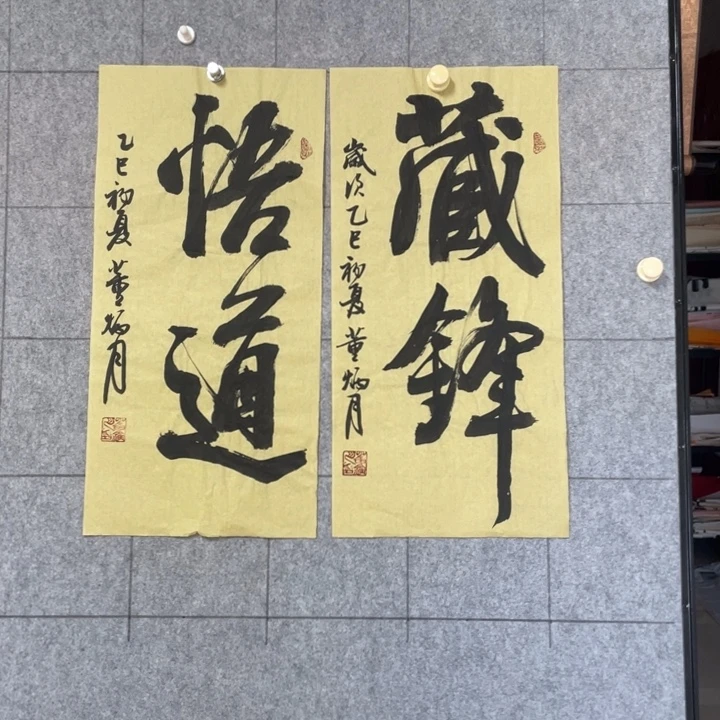 藏鋒
歲次乙巳初夏 董炳月
悟道
乙巳初夏 董炳月